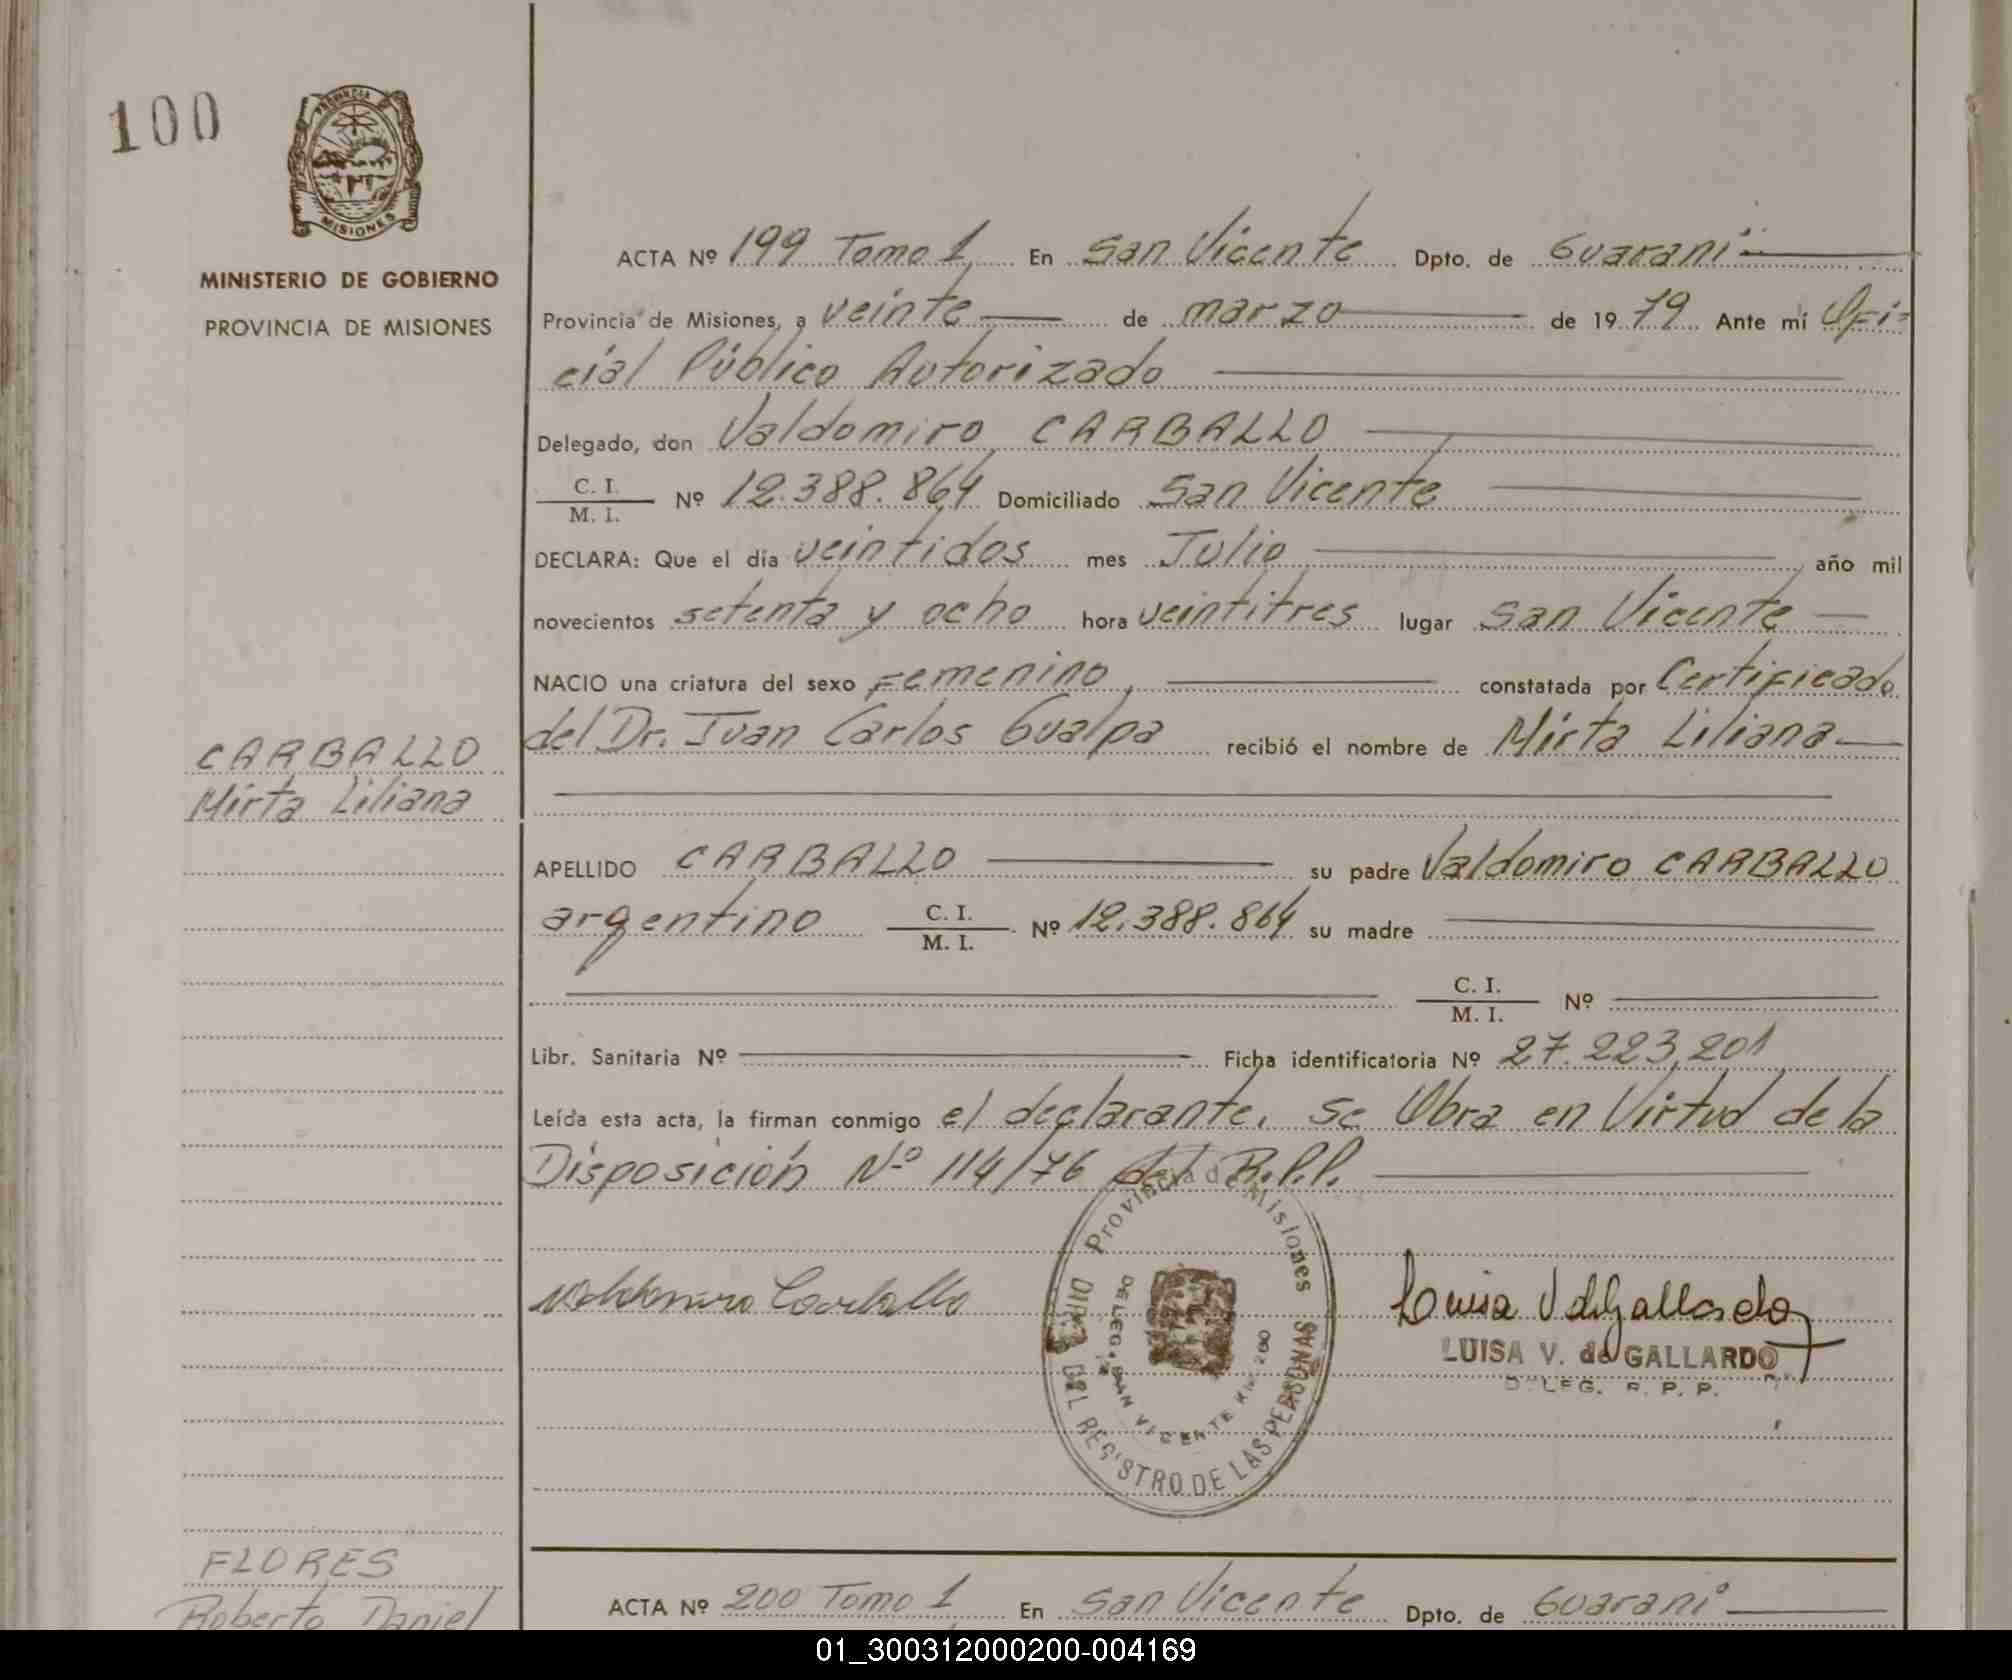 100
PROVINCIA
MISIONES
MINISTERIO DE GOBIERNO
PROVINCIA DE MISIONES
ACTA Nº 199 Tomo 1 En San Vicente Dpto. de Guaraní
Provincia de Misiones, a veinte de marzo de 1979 Ante mí Ofi=
cial Público Autorizado
Delegado, don Valdomiro CARBALLO
C. I.
M. I. Nº 12.388.864 Domiciliado San Vicente
DECLARA: Que el día veintidos mes Julio año mil
novecientos setenta y ocho hora veintitres lugar San Vicente
NACIO una criatura del sexo Femenino, constatada por Certificado
del Dr. Juan Carlos Gualpa recibió el nombre de Mirta Liliana
CARBALLO
Mirta Liliana
APELLIDO CARBALLO su padre Valdomiro CARBALLO
argentino C. I.
M. I. Nº 12.388.864 su madre
C. I.
M. I. Nº
Libr. Sanitaria Nº Ficha identificatoria Nº 27.223.201
Leída esta acta, la firman conmigo el declarante. Se Obra en Virtud de la
Disposición Nº 114/76 del R.P.P.
Valdomiro Carballo
Provincia de Misiones
DEL REGISTRO DE LAS PERSONAS
DELEG. SAN VICENTE Km. 200
Luisa V de Gallardo
LUISA V. de GALLARDO
DELEG. R. P. P.
FLORES
Roberto Daniel
ACTA Nº 200 Tomo 1 En San Vicente Dpto. de Guaraní
01_300312000200-004169